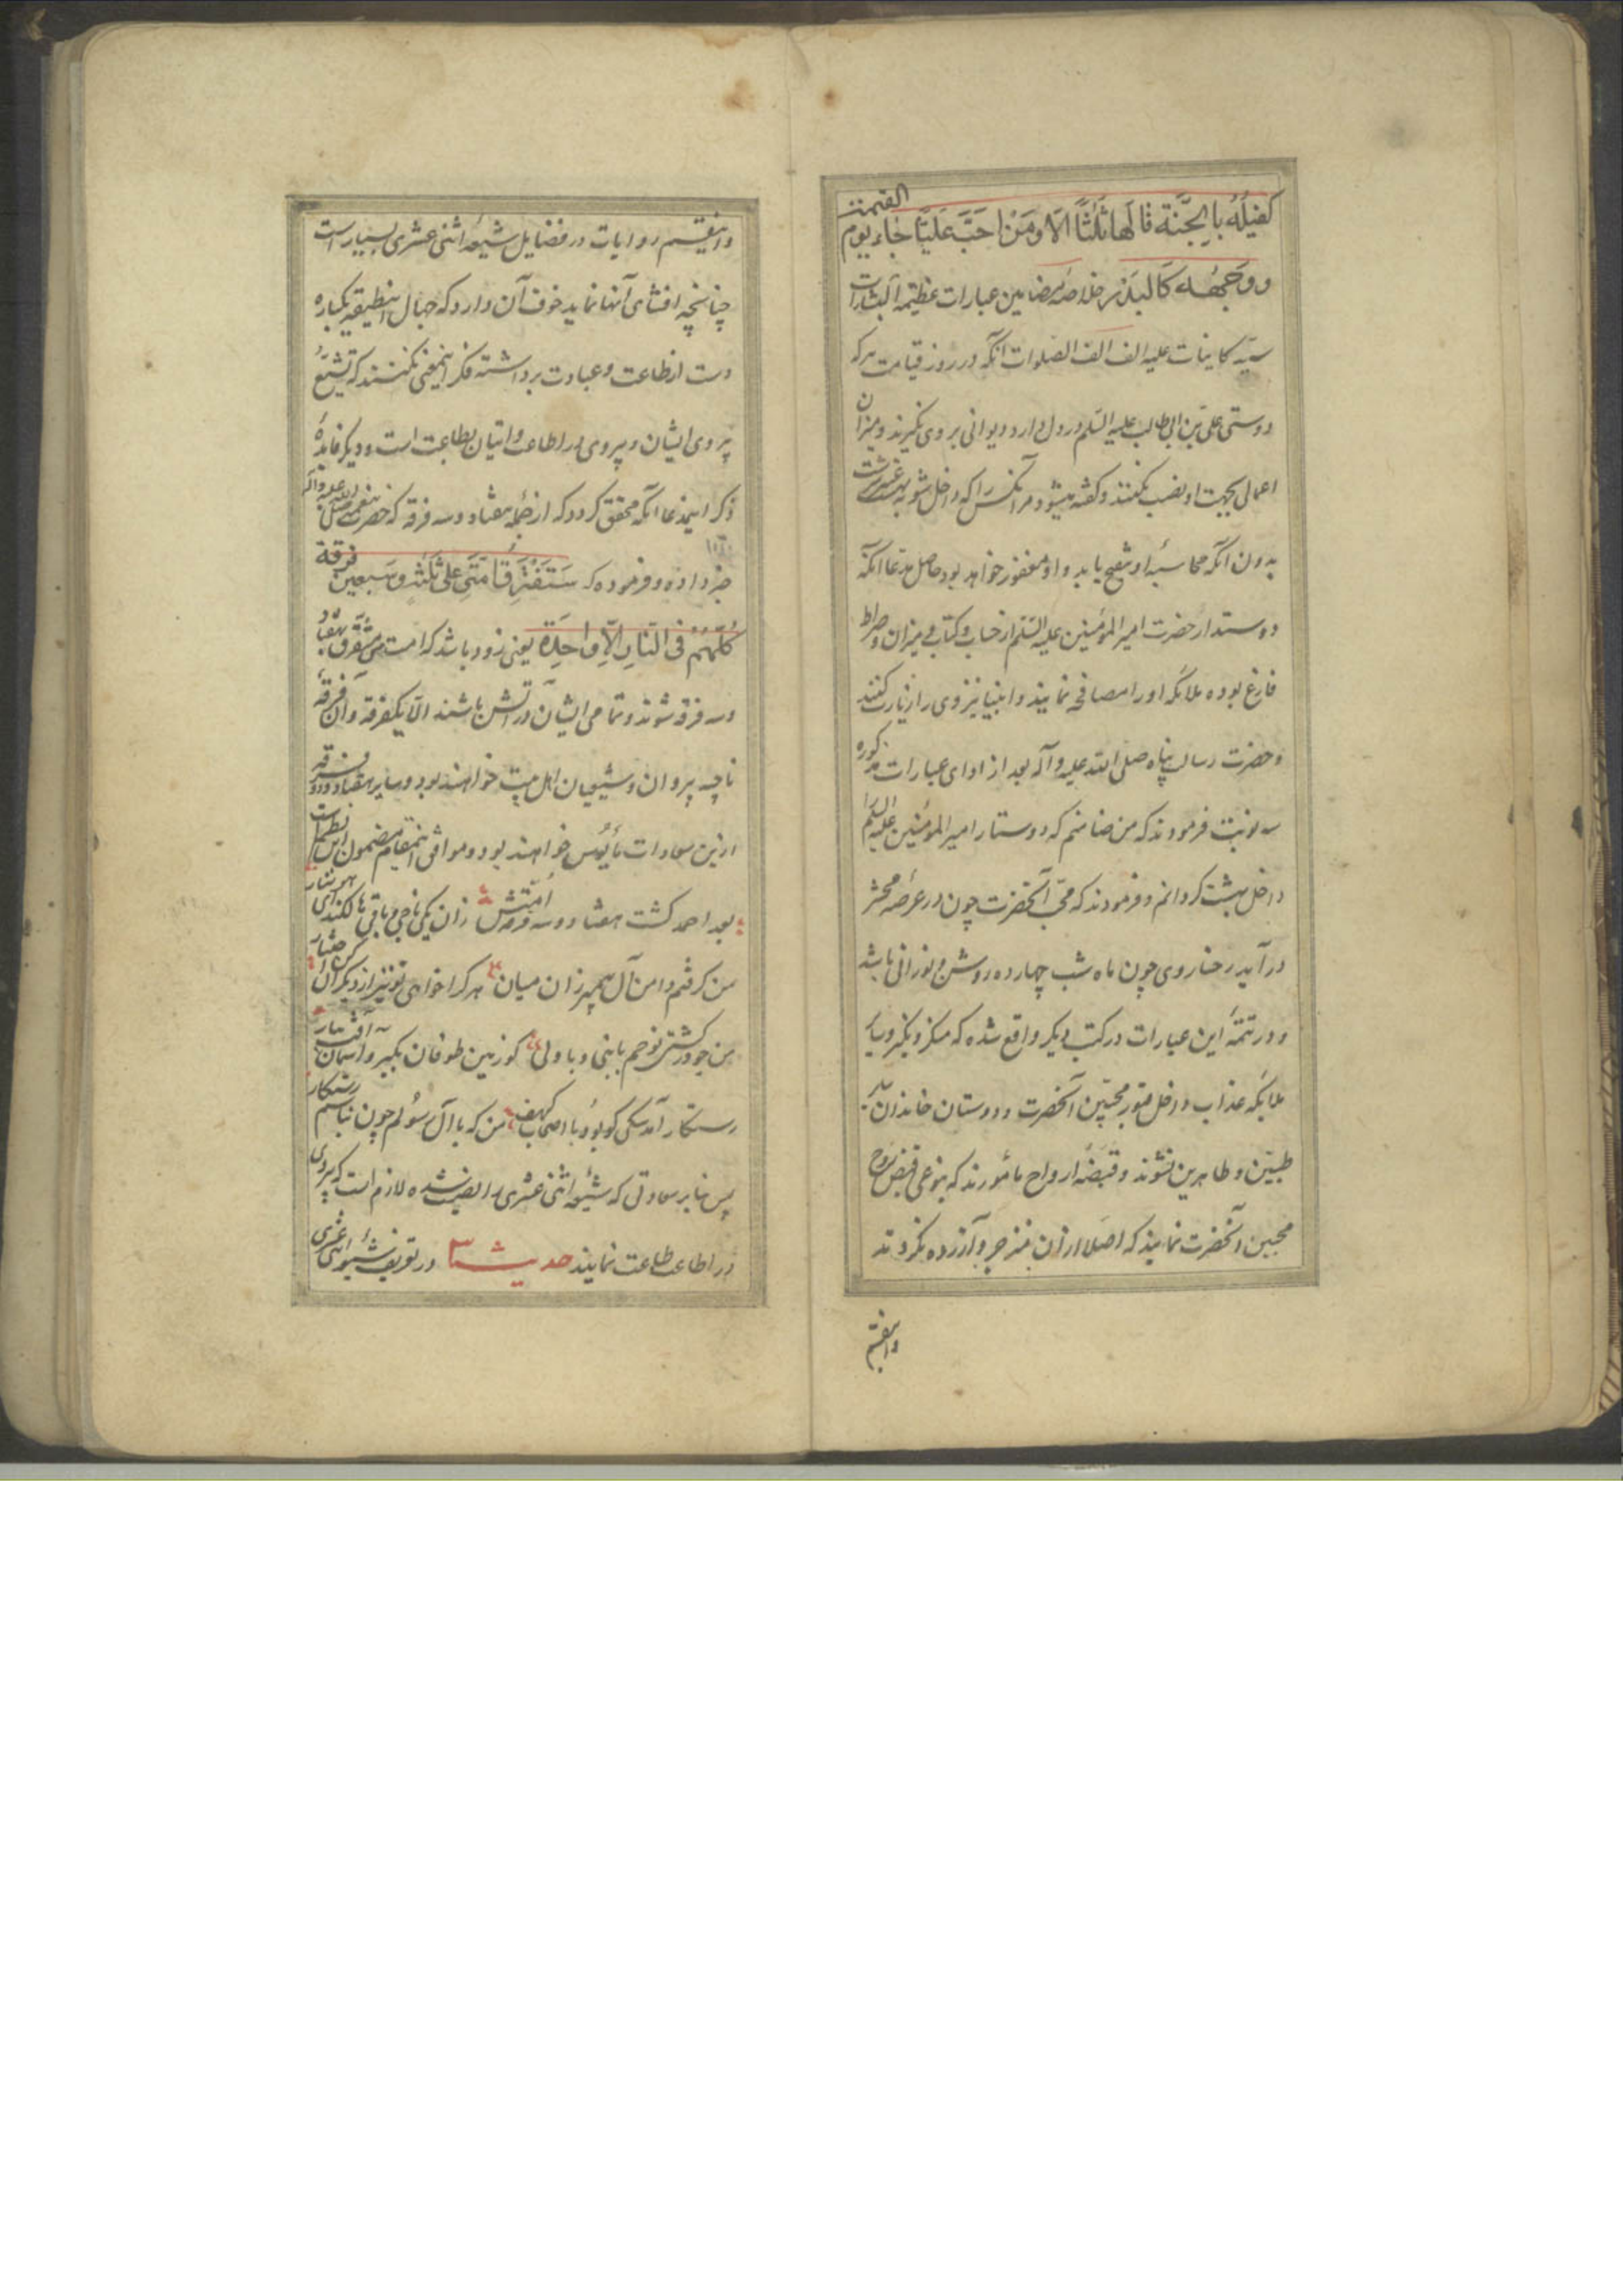 كفيله بالجنة قالها ثلثا الا ومن احب عليا جاء يوم القيمة
ووجهه كالبدر خلاصه مضامين عبارات عظيمه البشارات
سيد كاينات عليه الف الف الصلوات آنكه در روز قيامت هركه
دوستى على بن ابى طالب عليه السلم در دل دارد ديوانى بر وى نگيرند و ميزان
اعمال بجهت او نصب نكنند و گفته ميشود مر آنكس را كه داخل شو به بهشت
بدون آنكه محاسبه او شفيع يابد و او مغفور خواهد بود حاصل مدعا آنكه
دوستدار حضرت امير المؤمنين عليه السلم از حساب و كتاب و ميزان و صراط
فارغ بوده ملائكه او را مصافحه نمايند و انبيا نيز وى را زيارت كنند
و حضرت رسالت پناه صلى الله عليه وآله بعد از اداى عبارات مذكوره
سه نوبت فرمودند كه من ضامنم كه دوستار امير المؤمنين عليه السلم را
داخل بهشت گردانم و فرمودند كه محب آنحضرت چون در عرصه محشر
در آيد رخسار وى چون ماه شب چهارده روشن و نورانى باشد
و در تتمه اين عبارات در كتب ديگر واقع شده كه منكر و نكير و ساير
ملايكه عذاب داخل قبور محبين آنحضرت و دوستان خاندان
طيبين و طاهرين نشوند و قبضه ارواح مأمورند كه بنوعى قبض روح
محبين آنحضرت نمايند كه اصلا از آن منزجر و آزرده نگردند
واينقسم
واينقسم روايات در فضايل شيعه اثنى عشرى بسيار است
چنانچه افشاى آنها نمايد خوف آن دارد كه جهال اينطبقه يكباره
دست از طاعت و عبادت برداشته فكر اينمعنى نكنند كه تشيع
پيروى ايشان و پيروى در اطاعت و اتيان بطاعت است و ديگر فايدهٔ
ذكر اينمدعا آنكه محقق گردد كه از جمله هفتاد و سه فرقه كه حضرت پيغمبر صلى الله عليه وآله
خبر داده و فرموده كه ستفترق امتى على ثلث وسبعين فرقة
كلهم فى النار الا واحدة يعنى زود باشد كه امت من متفرق بهفتاد
و سه فرقه شوند و تمامى ايشان در آتش باشند الا يكفرقه و آن فرقهٔ
ناجيه پيروان و شيعيان اهل بيت خواهند بود و ساير هفتاد و دو فرقه
ازين سعادات مأيوس خواهند بود و موافق اينمقام مضمون اين نظم است
بعد احمد گشت هفتاد و سه فرقه امتش زان يكى ناجى و باقى هالكند اى هوشيار
من گرفتم دامن آل پيمبر زان ميان هر كرا خواهى تو نيز از ديگران كن اختيار
من چو در كشتى نوحم با نبى و با ولى گو زمين طوفان بگير و آسمان آتش ببار
رستگار آمد سگى كو بود با اصحاب كهف من كه با آل رسولم چون نباشم رستگار
پس بنابر سعادتى كه شيعه اثنى عشرى را نصيب شده لازم است كه پيروى
در اطاعت طاعت نمايند حديث در تعريف شيعه اثنى عشرى